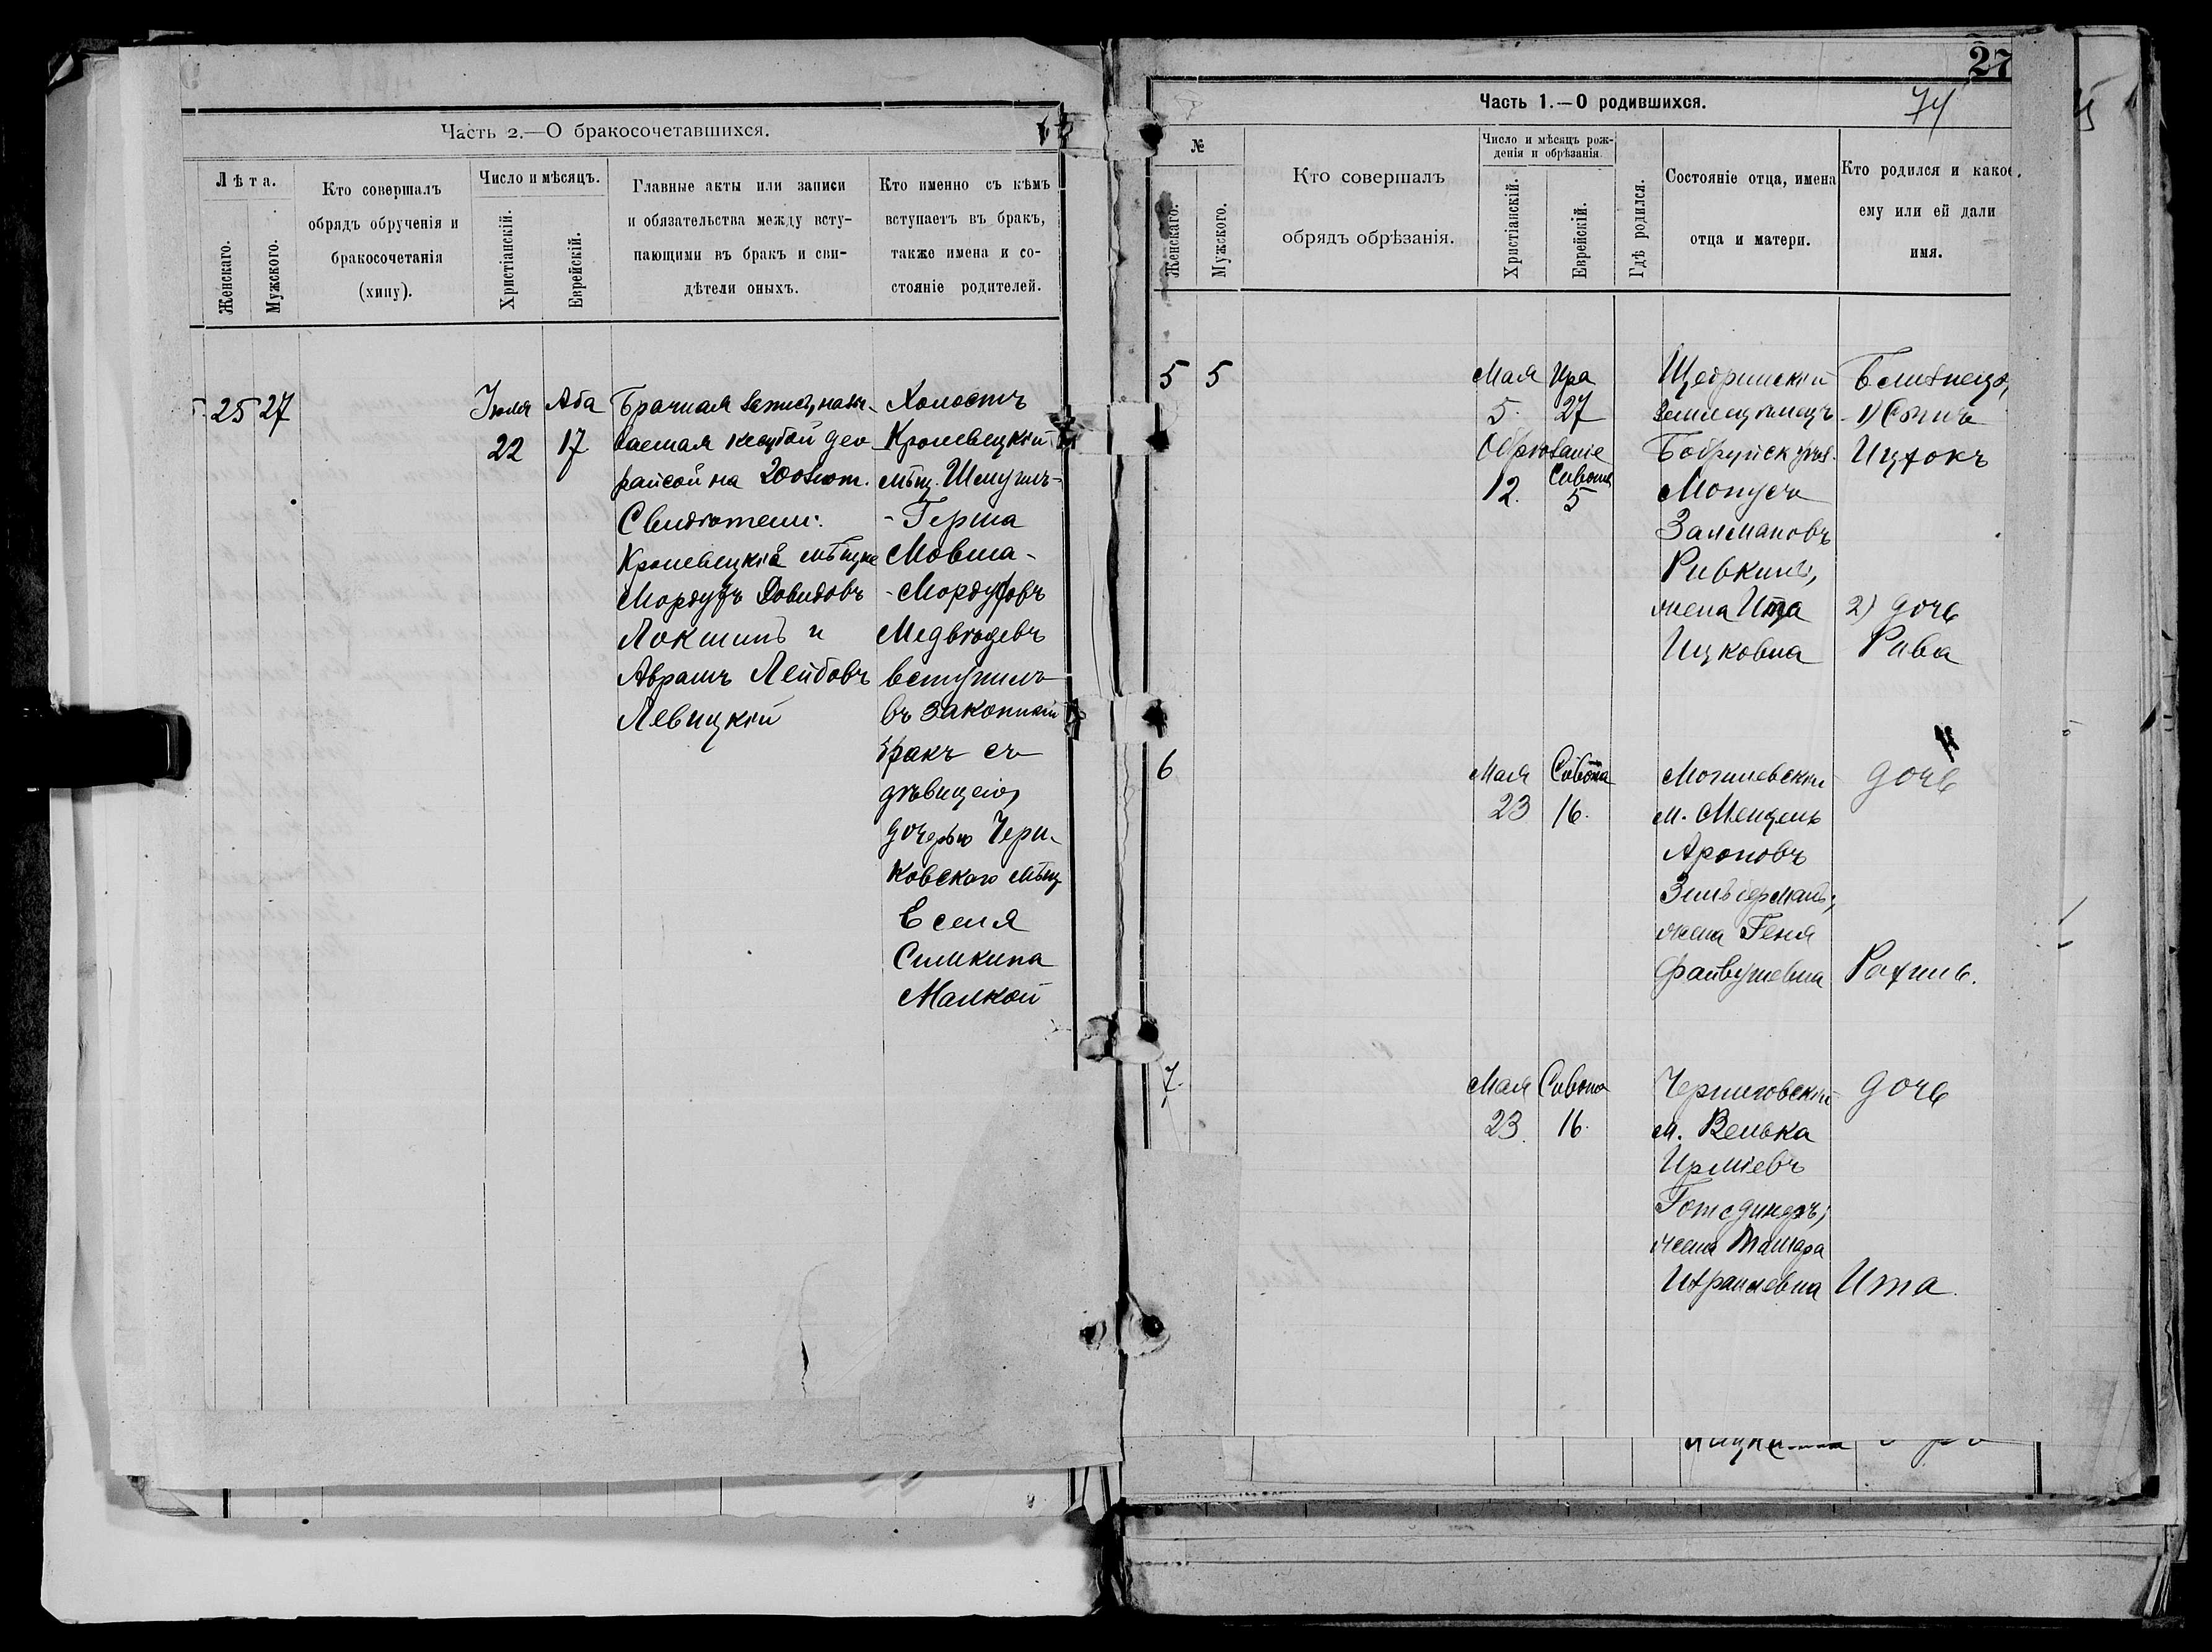 Часть 2.—О бракосочетавшихся.
Лѣта.
Женскаго.
Мужского.
Кто совершалъ
обрядъ обрученія и
бракосочетанія
(хипу).
Число и мѣсяцъ.
Христіанскій.
Еврейскій.
Главные акты или записи
и обязательства между всту-
пающими въ бракъ и сви-
дѣтели оныхъ.
Кто именно съ кѣмъ
вступаетъ въ бракъ,
также имена и со-
стояніе родителей.
25 27
Іюля
22
Аба
17
Брачная запись, назы-
ваемая кесубой део
райсой на 200 злот.
Свидѣтели:
Кролевецкіе мѣщане
Мордухъ Довидовъ
Локшинъ и
Аврамъ Лейбовъ
Левицкій
Холостъ
Кролевецкій
мѣщ. Шмуилъ-
-Герша
Мовша-
-Мордуховъ
Медвѣдевъ
вступилъ
въ законный
бракъ съ
дѣвицею,
дочерью Чери-
ковскаго мѣщ
Еселя
Симкина
Малкой
27
74
Часть 1.—О родившихся.
№
Женскаго.
Мужского.
Кто совершалъ
обрядъ обрѣзанія.
Число и мѣсяцъ рож-
денія и обрѣзанія.
Христіанскій.
Еврейскій.
Гдѣ родился.
Состояніе отца, имена
отца и матери.
Кто родился и какое
ему или ей дали
имя.
5 5
Мая
5.
Ира
27
Обрѣзаніе
12.
Сивона
5
Щедринскій
землец
Бобруйск уѣз.
Монусъ
Залмановъ
Ривкинъ,
жена Ита
Ицковна
Близнецы,
1) Сынъ
Ицхокъ
2) дочь
Рива
6
Мая
23
Сивона
16.
Могилевскій
м. Мендель
Ароновъ
Зильберманъ;
жена Геня
Файвушевна
дочь
Рахиль.
7.
Мая
23.
Сивона
16.
Черниговскій
м. Велька
Ирміевъ
жена Тамара
Израилевна
дочь
Ита.